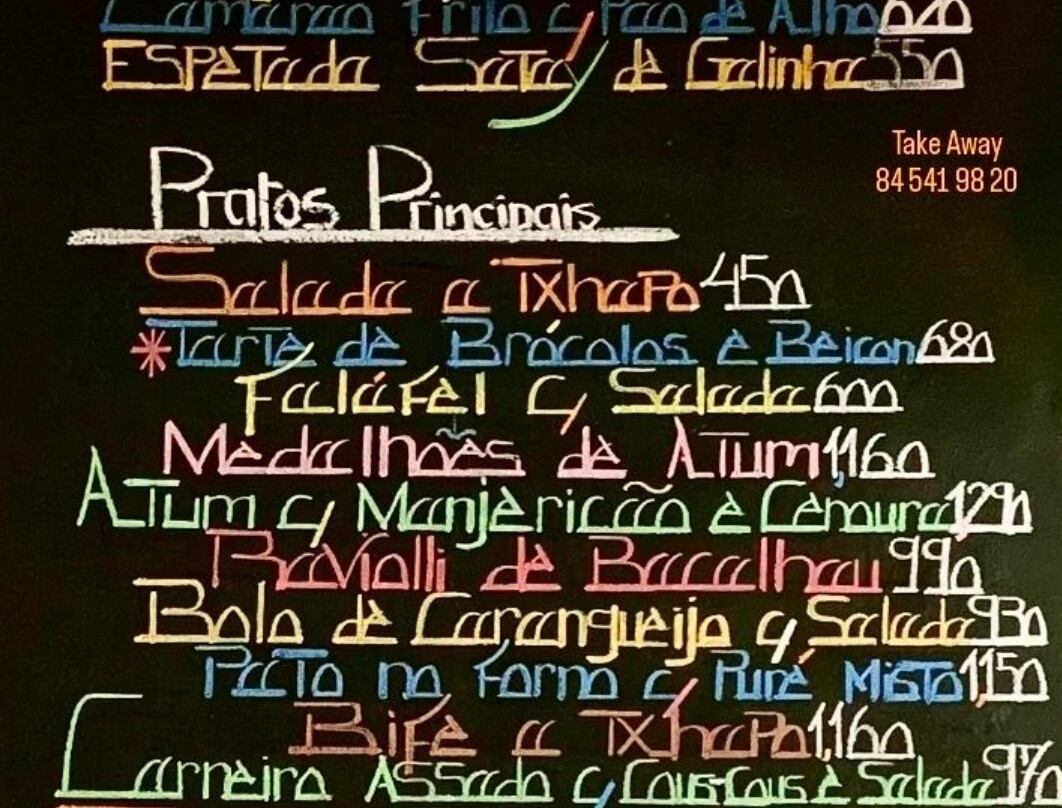 Camarão Frito c/ Pão de Alho 620
Espetada Satay de Galinha 550
Take Away
84 541 98 20
Pratos Principais
Salada a Txhapo 450
*Tarte de Brócolos e Beicon 680
Faláfel c/ Salada 600
Medalhões de Atum 1,160
Atum c/ Manjericão e Cenoura 1290
Raviolli de Bacalhau 990
Bolo de Carangueijo c/ Salada 930
Pato no Forno c/ Puré Misto 1,150
Bife a Txhapo 1,160
Carneiro Assado c/ Cous-Cous e Salada 970